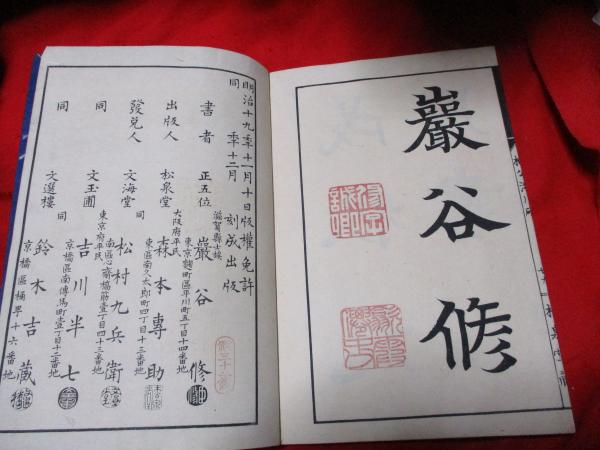 巖谷修
明治十九年十一月十日版權免許
同 年十二月 刻成出版
滋賀縣士族
書者 正五位 巖谷 修
東京麹町區平川町五丁目十四番地
大阪府平民
出版人 松泉堂 森本專助
東區南久太郎町四丁目十三番地
同
發兌人 文海堂 松村九兵衛
南區心齋橋筋壹丁目四十三番地
東京府平民
同 文玉圃 吉川半七
京橋區南傳馬町壹丁目十二番地
同
同 文選樓 鈴木吉藏
京橋區桶町十六番地